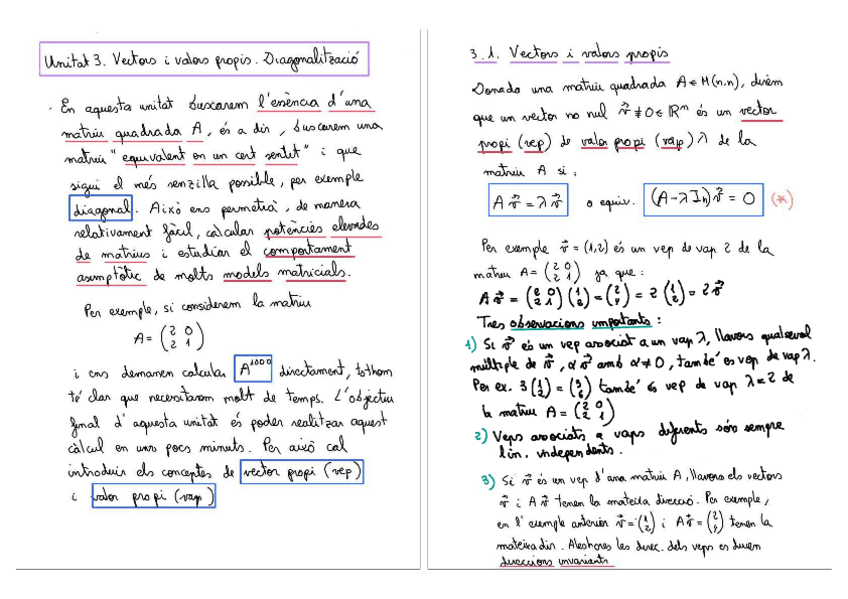 Unitat 3. Vectors i valors propis. Diagonalització
· En aquesta unitat buscarem l'essència d'una
matriu quadrada A, és a dir, buscarem una
matriu "equivalent en un cert sentit" i que
sigui el més senzilla possible, per exemple
diagonal. Això ens permetrà, de manera
relativament fàcil, calcular potències elevades
de matrius i estudiar el comportament
asimptòtic de molts models matricials.
Per exemple, si considerem la matriu
A = (2 0 / 2 1)
i ens demanen calcular A¹⁰⁰⁰ directament, tothom
té clar que necessitarem molt de temps. L'objectiu
final d'aquesta unitat és poder realitzar aquest
càlcul en uns pocs minuts. Per això cal
introduir els conceptes de vector propi (vep)
i valor propi (vap)
3.1. Vectors i valors propis
Donada una matriu quadrada A ∈ M(n,n), direm
que un vector no nul v⃗ ≠ 0 ∈ ℝⁿ és un vector
propi (vep) de valor propi (vap) λ de la
matriu A si:
A v⃗ = λ v⃗ o equiv. (A - λ Iₙ) v⃗ = 0 (*)
Per exemple v⃗ = (1,2) és un vep de vap 2 de la
matriu A = (2 0 / 2 1) ja que:
A v⃗ = (2 0 / 2 1) (1 / 2) = (2 / 4) = 2 (1 / 2) = 2 v⃗
Tres observacions importants:
1) Si v⃗ és un vep associat a un vap λ, llavors qualsevol
múltiple de v⃗, α v⃗ amb α ≠ 0, també és vep de vap λ.
Per ex. 3 (1 / 2) = (3 / 6) també és vep de vap λ = 2 de
la matriu A = (2 0 / 2 1)
2) Veps associats a vaps diferents són sempre
lin. independents.
3) Si v⃗ és un vep d'una matriu A, llavors els vectors
v⃗ i A v⃗ tenen la mateixa direcció. Per exemple,
en l'exemple anterior v⃗ = (1 / 2) i A v⃗ = (2 / 4) tenen la
mateixa dir. Aleshores les direc. dels veps es diuen
direccions invariants